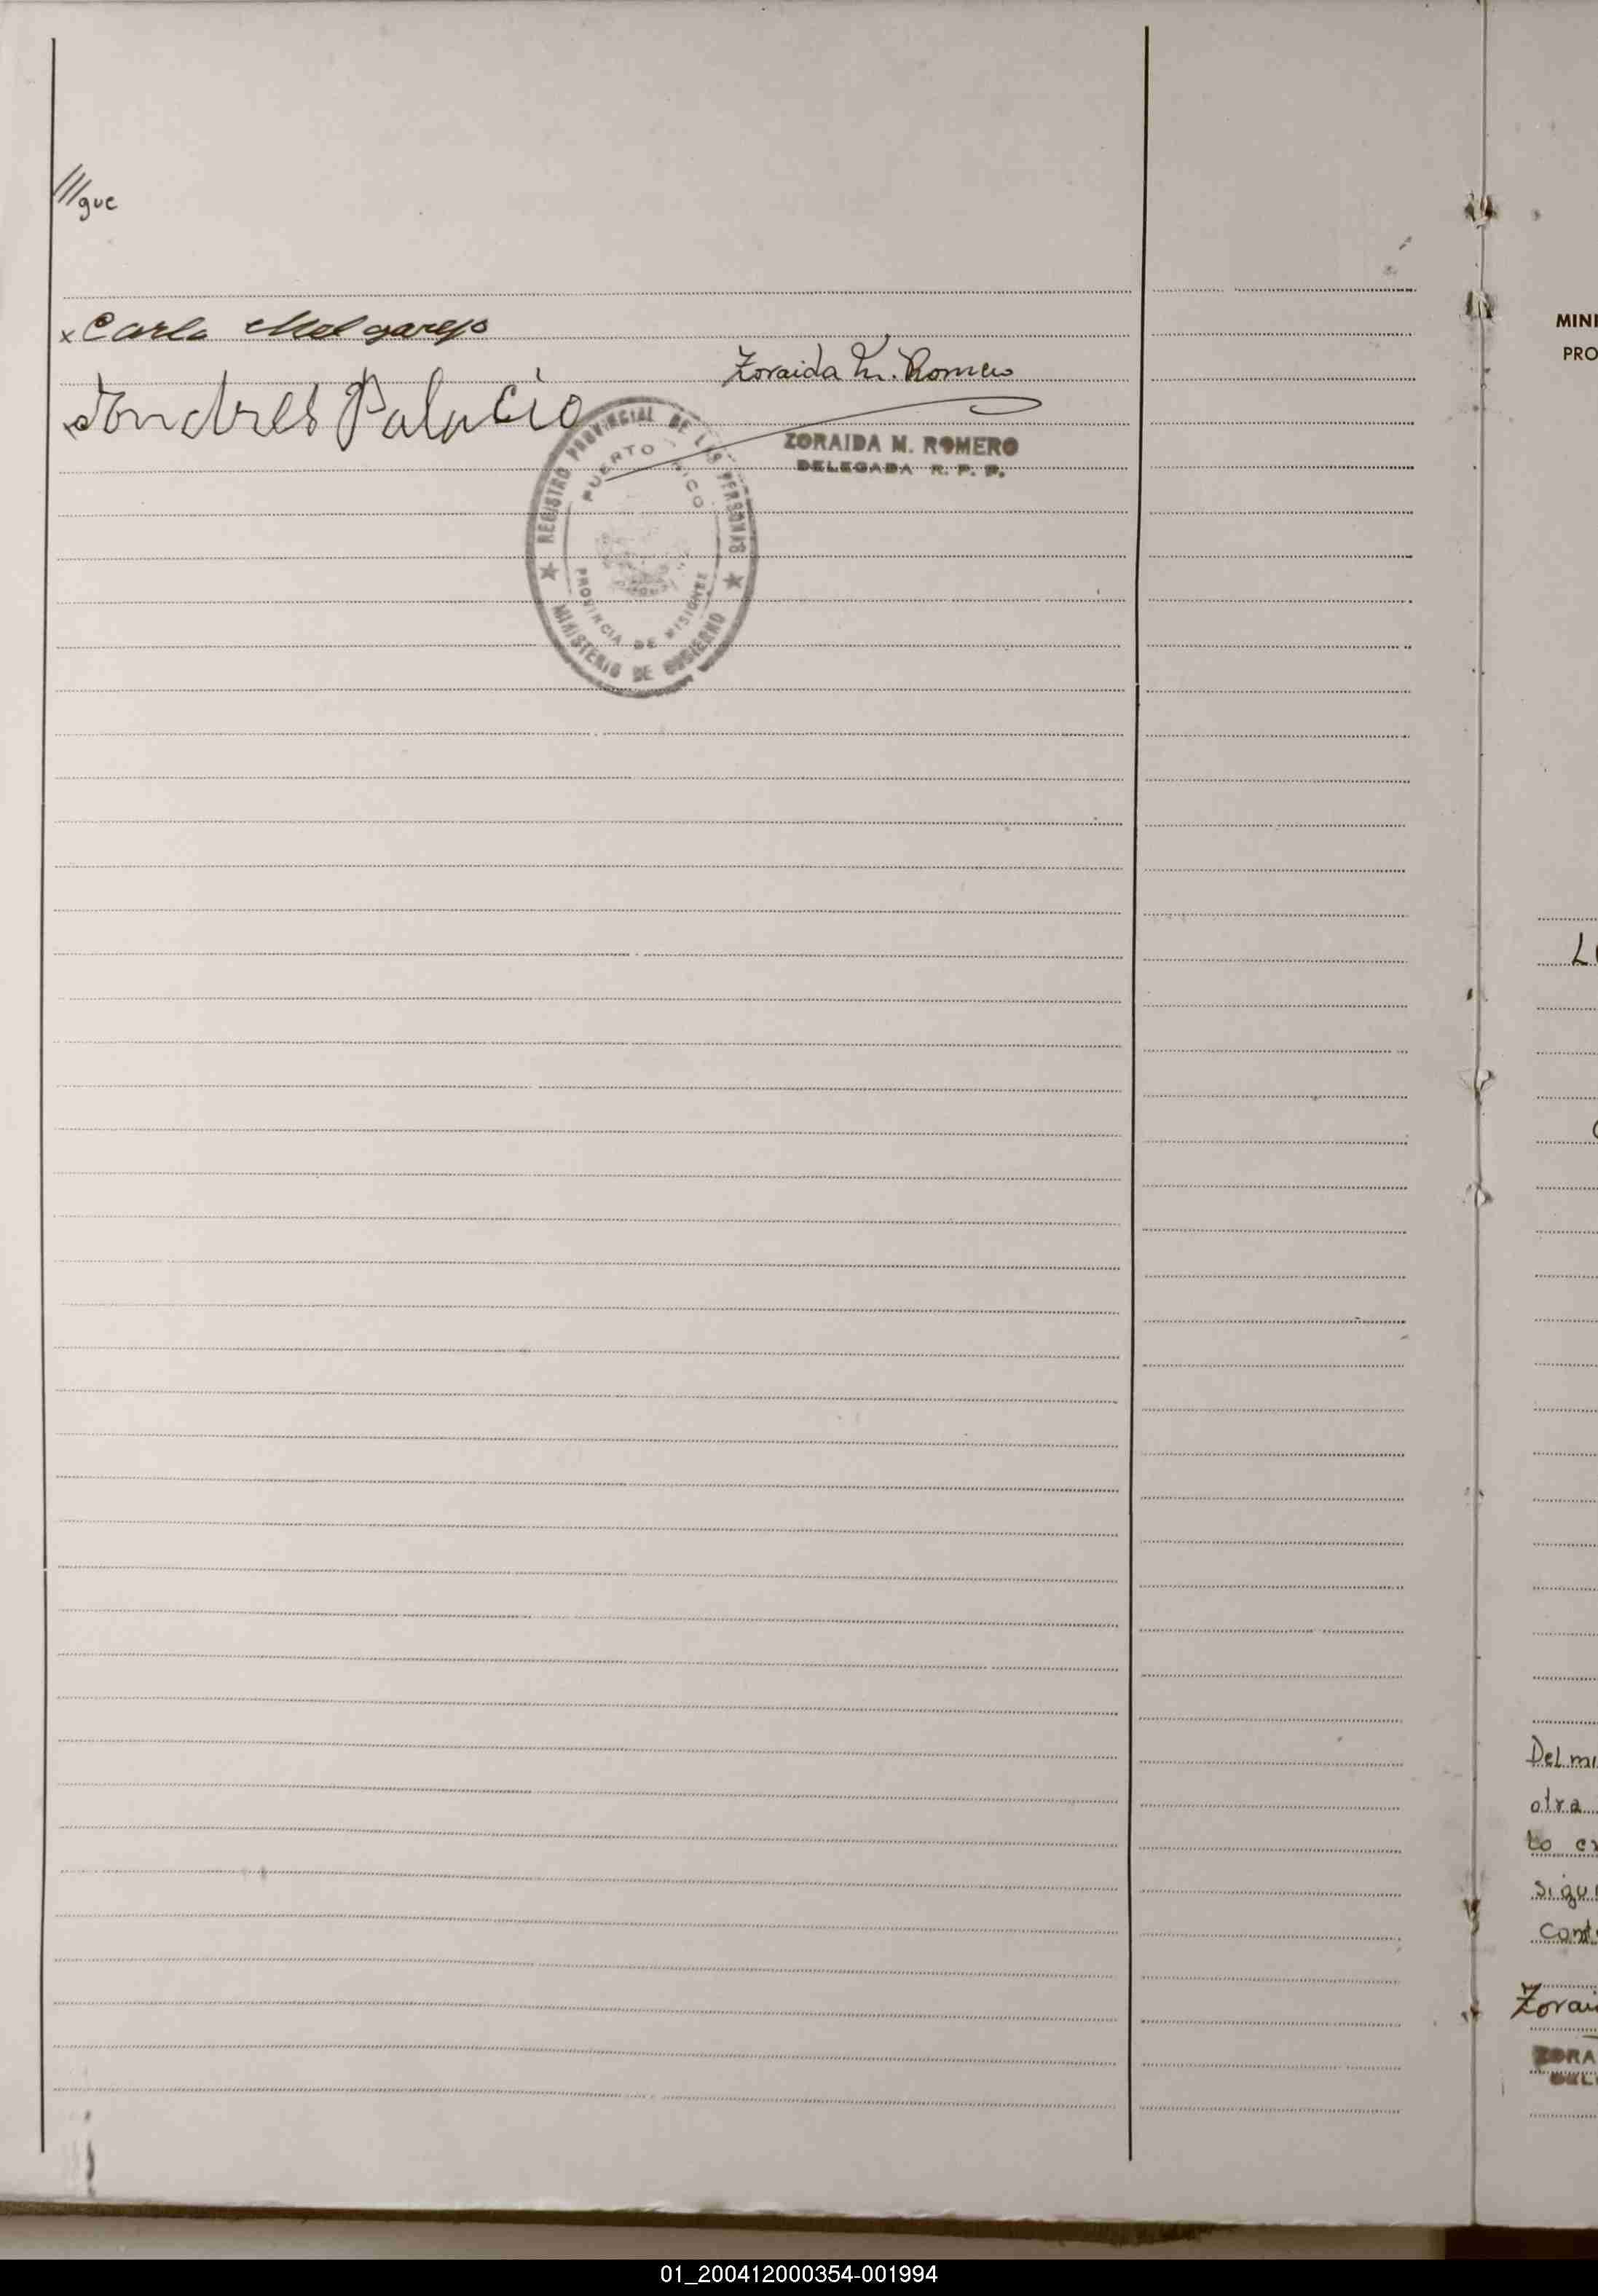 ///gue
x Carlo Melgarejo
Zoraida M. Romero
x Andres Palacio
ZORAIDA M. ROMERO
DELEGADA R. P. P.
REGISTRO PROVINCIAL DE LAS PERSONAS
PUERTO RICO
PROVINCIA DE MISIONES
MINISTERIO DE GOBIERNO
MINI
PRO
Del mi
otra
to ex
sigui
Cont
Zorai
ZORA
DEL
01_200412000354-001994